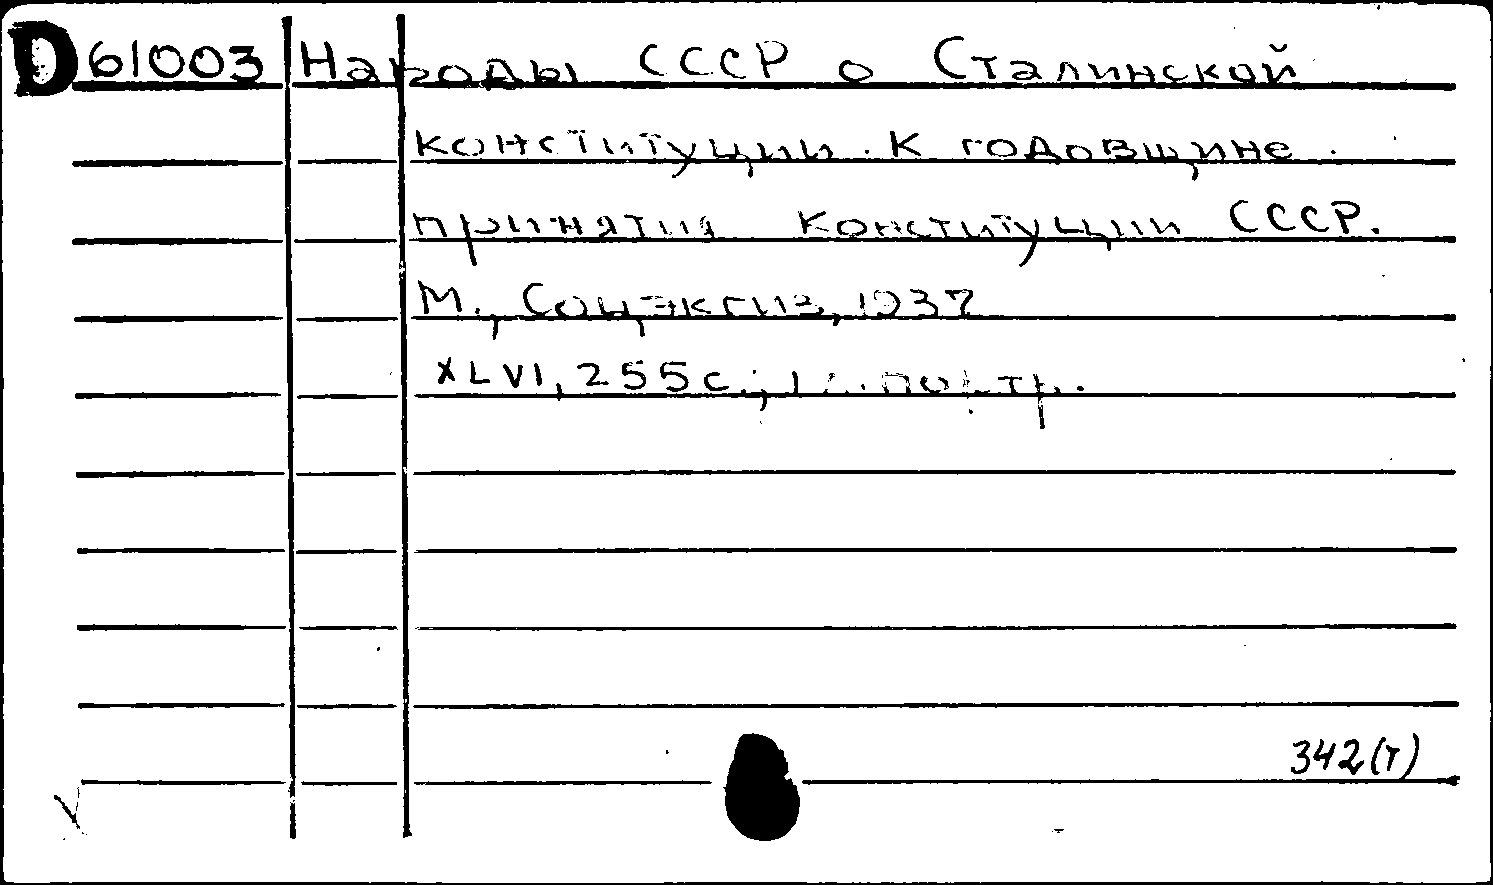 D 61003 Народы СССР о Сталинской
конституции. К годовщине
принятия Конституции СССР.
М., Соцэкгиз, 1937
XLVI, 255 с.,
342(т)